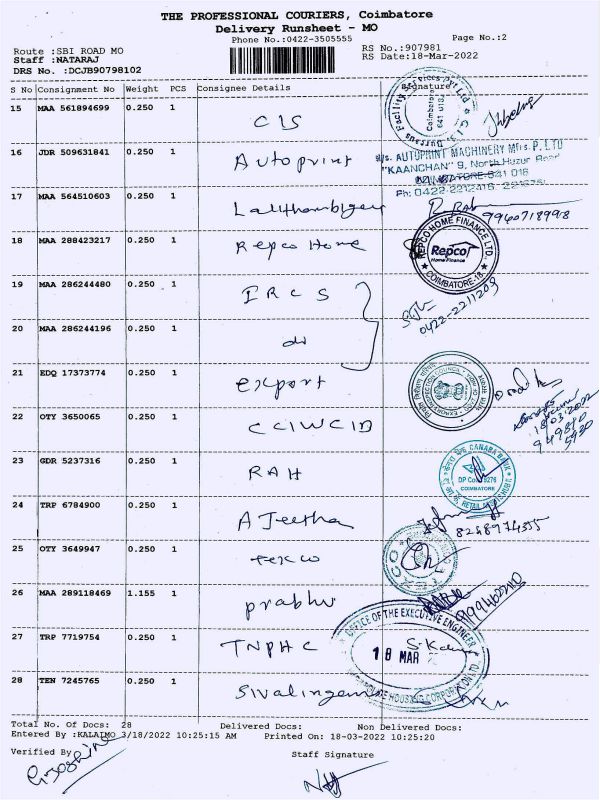 THE PROFESSIONAL COURIERS, Coimbatore
Delivery Runsheet - MO
Phone No.:0422-3505555
Page No.:2
Route :SBI ROAD MO
RS No.:907981
Staff :NATARAJ
RS Date:18-Mar-2022
DRS No. :DCJB90798102
S No Consignment No Weight PCS Consignee Details Signature
15 MAA 561894699 0.250 1 CIS
16 JDR 509631841 0.250 1 Autoprint
M/s. AUTOPRINT MACHINERY Mfrs. P. LTD
"KAANCHAN" 9, North Huzur Road
COIMBATORE-641 018
17 MAA 564510603 0.250 1
9940718998
18 MAA 288423217 0.250 1 Repco Home
REPCO HOME FINANCE LTD.
Repco
Home Finance
COIMBATORE-18
19 MAA 286244480 0.250 1 IRCS
0422-2211209
20 MAA 286244196 0.250 1 do
21 EDQ 17373774 0.250 1 export
18.03.2022
22 OTY 3650065 0.250 1 CCIWCID
23 GDR 5237316 0.250 1 RAH
CANARA BANK
COIMBATORE
24 TRP 6784900 0.250 1 AJeetha
25 OTY 3649947 0.250 1
26 MAA 289118469 1.155 1 prabhu
27 TRP 7719754 0.250 1 TNPHC
OFFICE OF THE EXECUTIVE ENGINEER
18 MAR
HOUSING CORPORATION LTD
28 TEN 7245765 0.250 1 Sivalingam
Total No. Of Docs: 28 Delivered Docs: Non Delivered Docs:
Entered By :KALAIMO 3/18/2022 10:25:15 AM Printed On: 18-03-2022 10:25:20
Verified By
Staff Signature